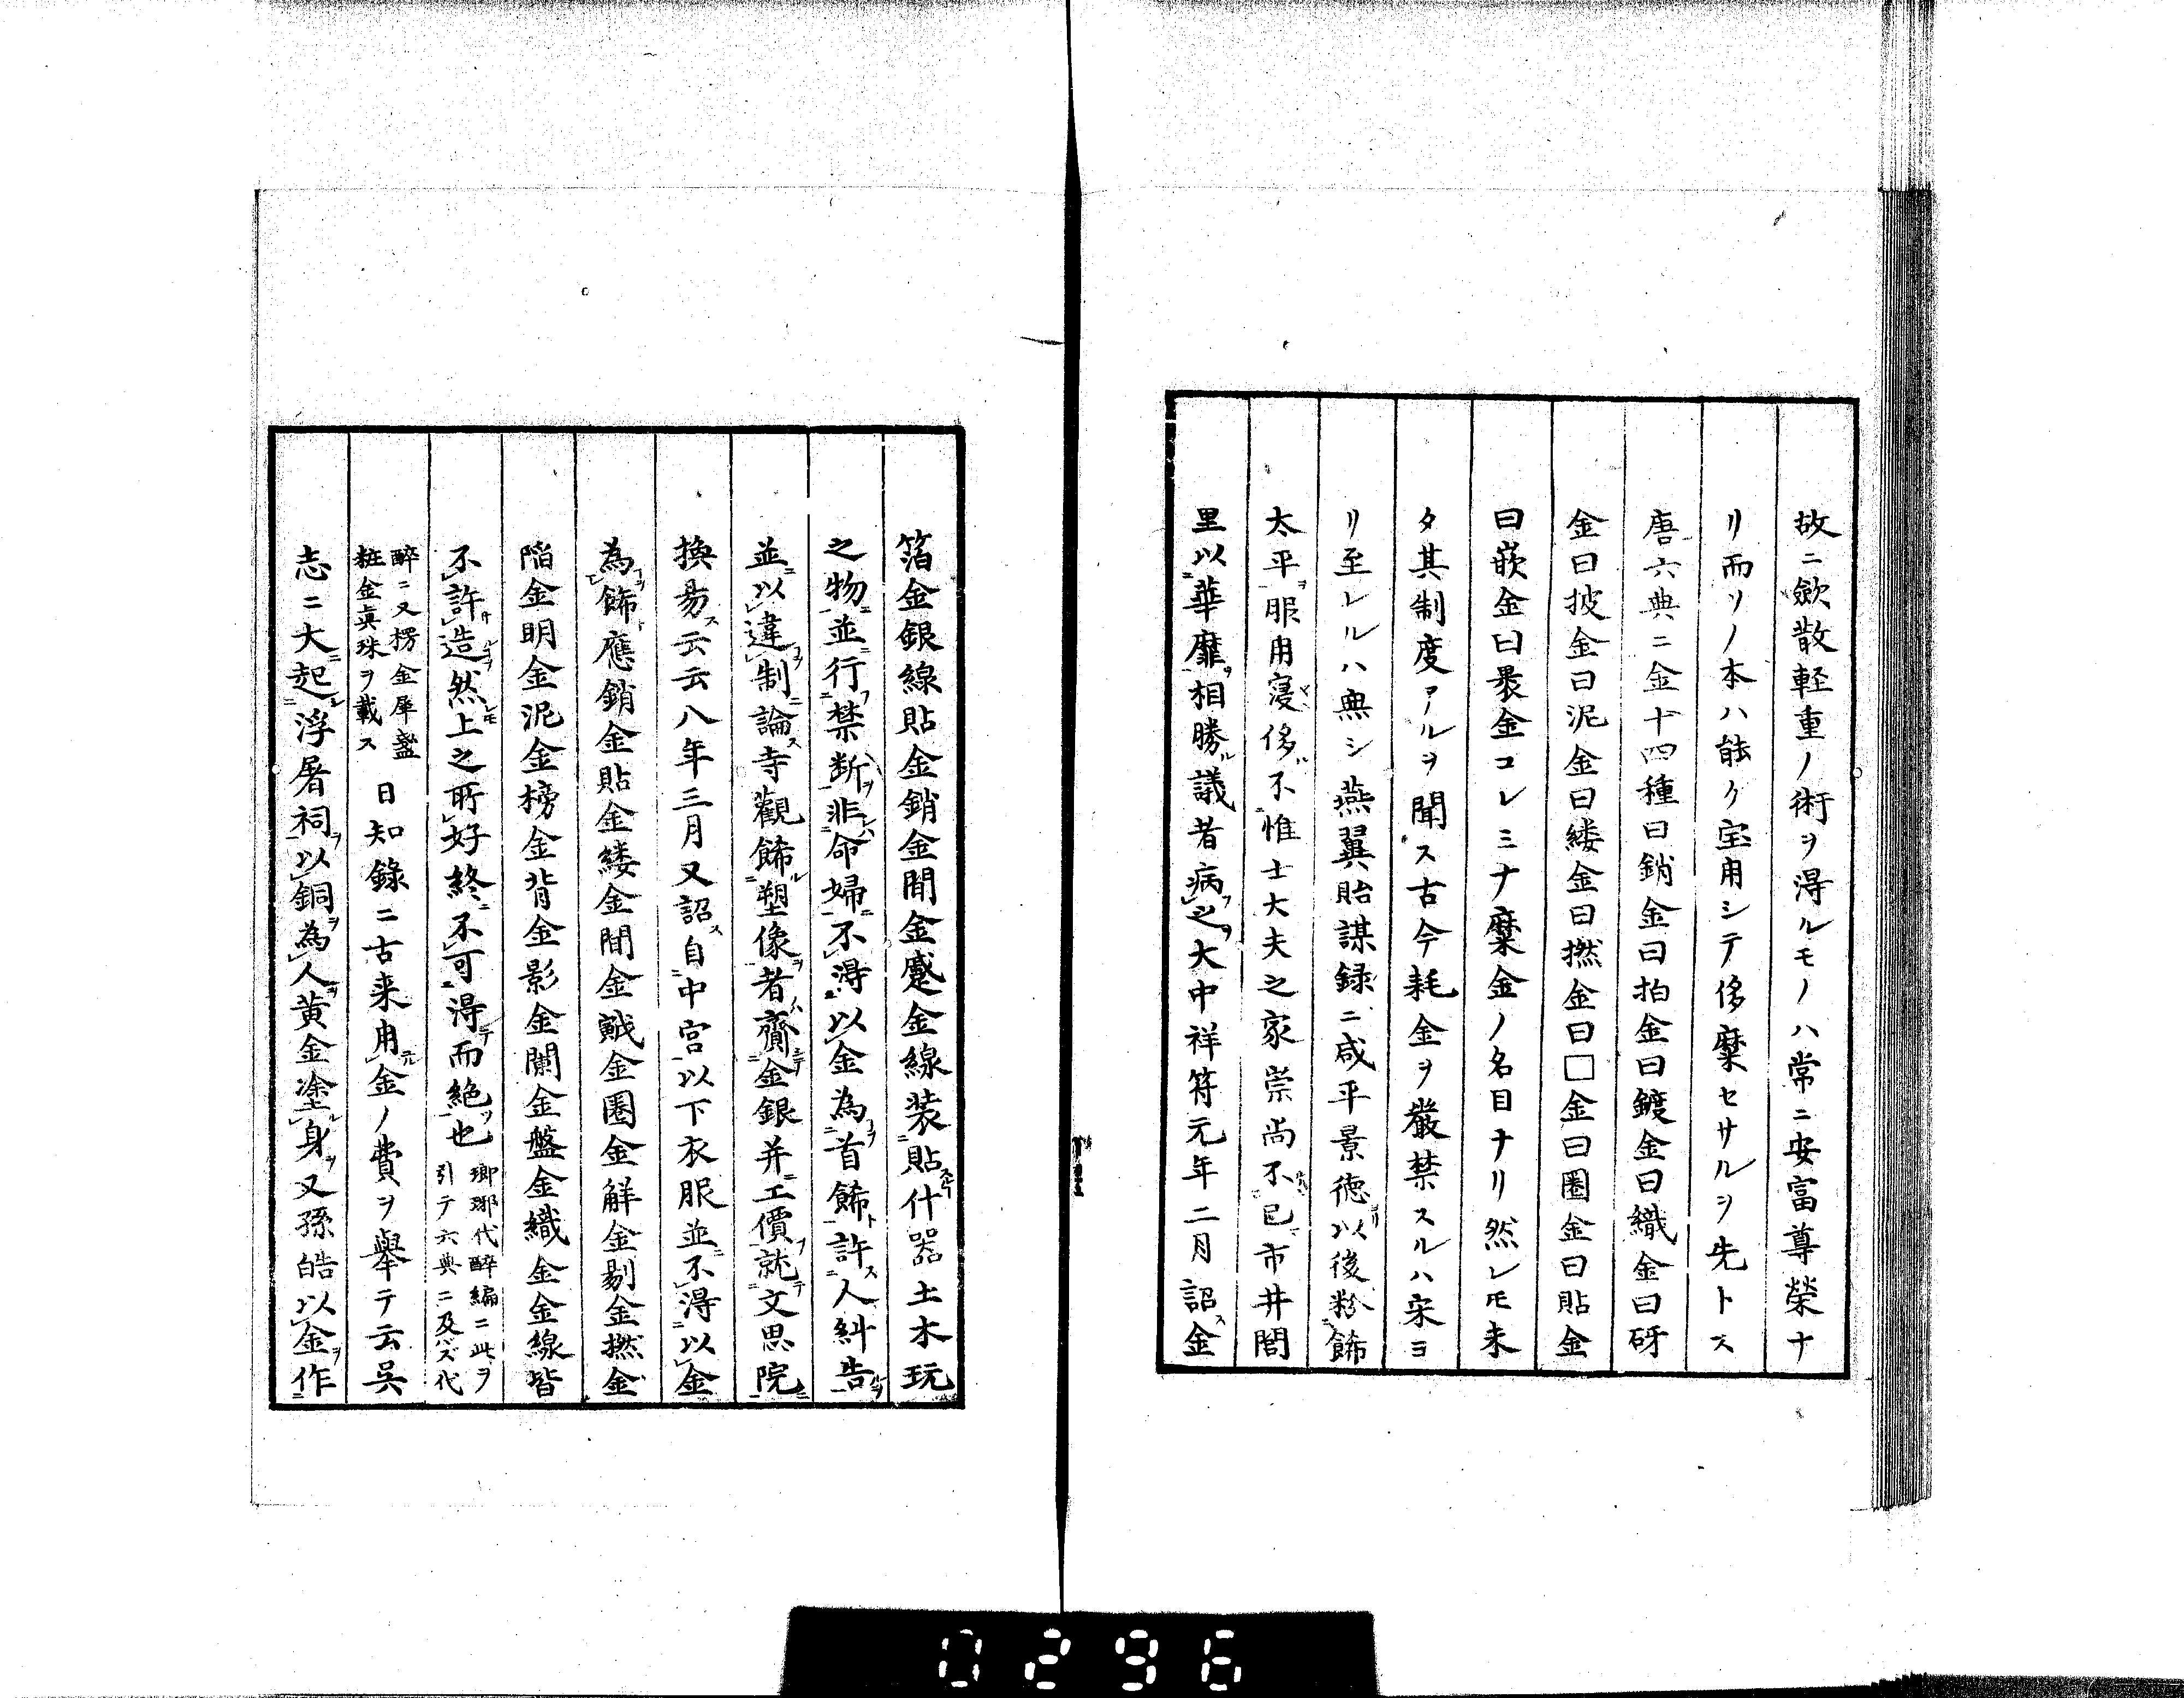 故ニ歛散軽重ノ術ヲ得ルモノハ常ニ安富尊榮ナ
リ而ソノ本ハ能ク宝用シテ侈糜セサルヲ先トス
唐六典ニ金十四種曰銷金曰拍金曰鍍金曰織金曰砑
金曰披金曰泥金曰縷金曰撚金曰□金曰圏金曰貼金
曰嵌金曰裹金コレミナ糜金ノ名目ナリ然レ𪜈未
タ其制度アルヲ聞ス古今耗金ヲ嚴禁スルハ宋ヨ
リ至レルハ無シ燕翼貽謀録ニ咸平景徳以後粉餙
太平服用寖侈不惟士大夫之家崇尚不已市井閭
里以華靡相勝議者病之大中祥符元年二月詔金
箔金銀線貼金銷金間金蹙金線装貼什器土木玩
之物並行禁断非命婦不得以金為首餙許人糾告
並以違制論寺觀餙塑像者齎金銀并工價就文思院
換易云云八年三月又詔自中宮以下衣服並不得以金
為餙應銷金貼金縷金間金戭金圏金解金剔金撚金
陥金明金泥金榜金背金影金闌金盤金織金金線皆
不許造然上之所好終不可得而絶也 瑯琊代醉編ニ此ヲ
引テ六典ニ及バズ代
醉ニ又楞金犀盞
粧金真珠ヲ載ス 日知錄ニ古来用金ノ費ヲ擧テ云呉
志ニ大起浮屠祠以銅為人黄金塗身又孫皓以金作
0296